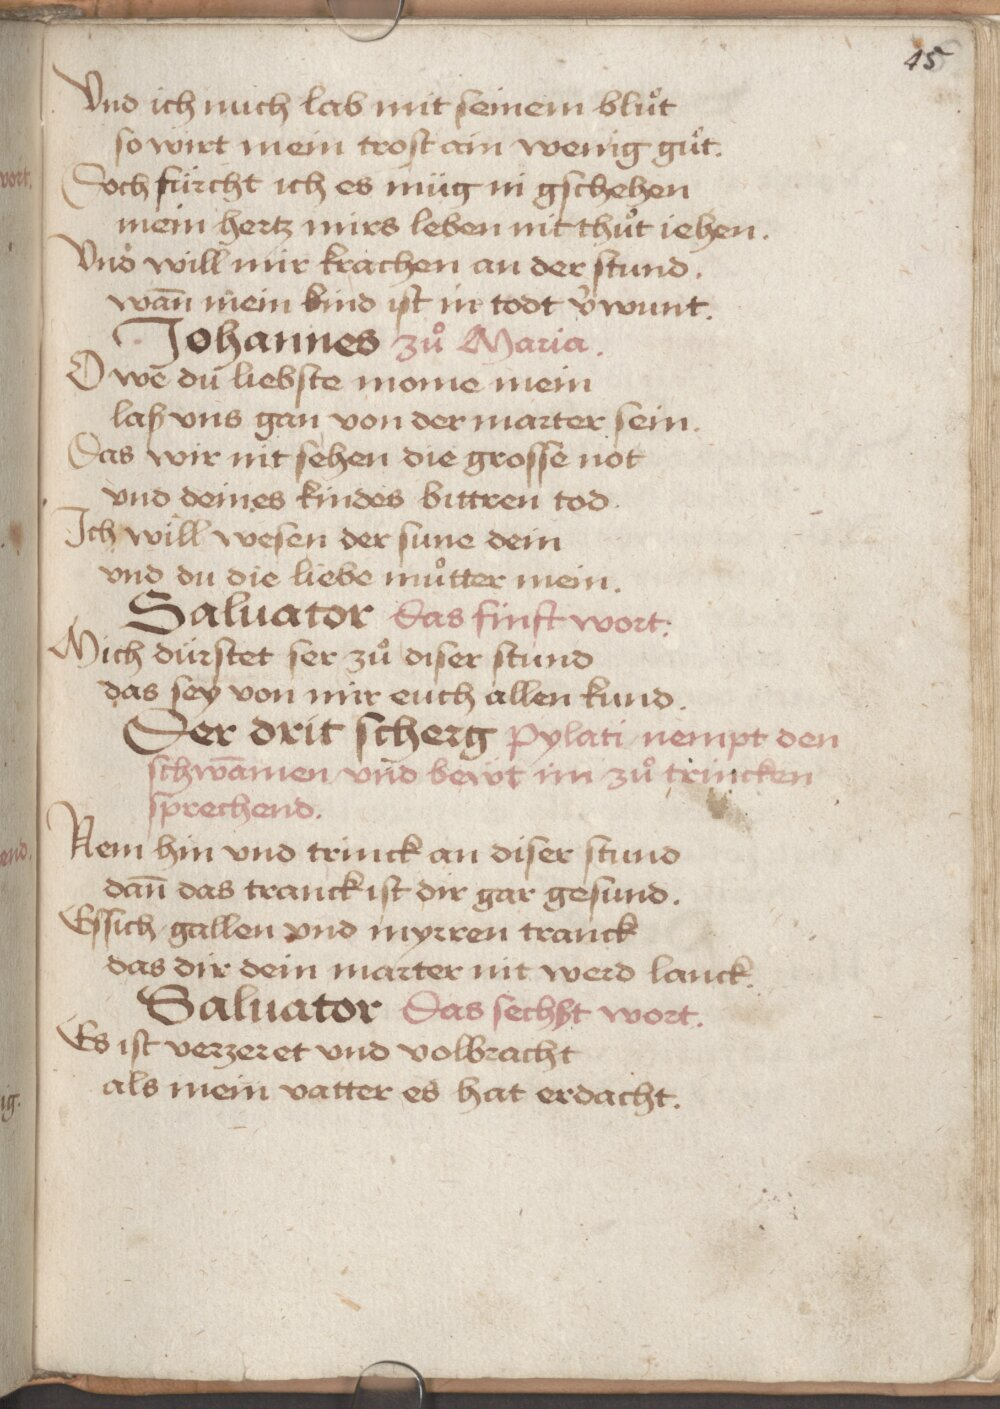 45
Vnd ich mich lab mit seinem blůt
so wirt mein trost ain wenig gůt.
Doch fürcht ich es müg ni gschehen
mein hertz mirs leben nit thůt iehen.
Vnd will mir krachen an der stund.
wan̄ mein kind ist in todt v̉wunt.
Johannes zů Maria.
O we du liebste mome mein
laß vns gan von der marter sein.
Das wir nit sehen die grosse not
vnd deines kindes bittren tod.
Ich will wesen der sune dein
vnd du die liebe můtter mein.
Saluator Das finft wort.
Mich dürstet ser zů diser stund
das sey von mir euch allen kund.
Der drit scherg Pylati nempt den
schwāmen vnd bewt im zů trincken
sprechend.
Nem hin vnd trinck an diser stund
dan̄ das tranck ist dir gar gesund.
Essich gallen vnd myrren tranck
das dir dein marter nit werd lanck.
Saluator Das sechst wort.
Es ist verzeret vnd volbracht
als mein vatter es hat erdacht.